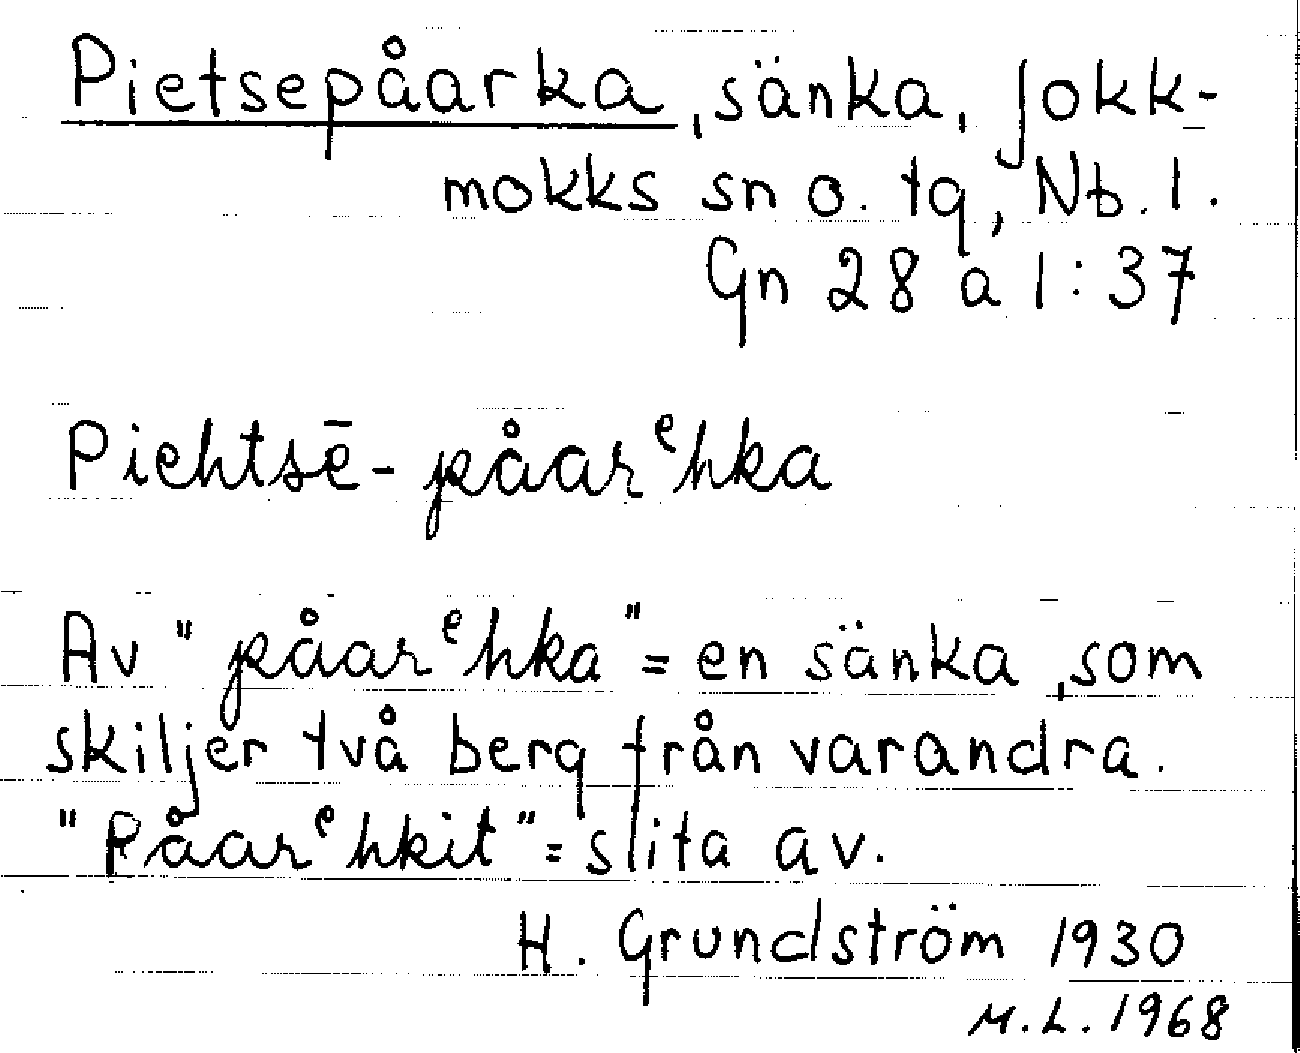 Pietsepåarka, sänka, Jokk-
mokks sn o. tg, Nb. l.
Gn 28 a 1:37
Piehtsē-påarᵉhka
Av "påarᵉhka" = en sänka, som
skiljer två berg från varandra.
"Påarᵉhkit" = slita av.
H. Grundström 1930
M.L. 1968